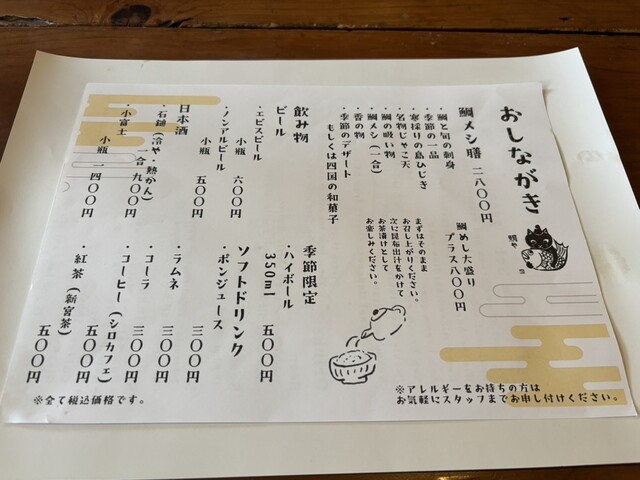 おしながき
鯛や
鯛メシ膳 二八〇〇円
鯛めし大盛り
プラス八〇〇円
・鯛と旬の刺身
・季節の一品
・寒採りの島ひじき
・名物じゃこ天
・鯛の吸い物
・鯛メシ(一合)
・香の物
・季節のデザート
もしくは四国の和菓子
まずはそのまま
お召し上がりください。
次に昆布出汁をかけて
お茶漬けとして
お楽しみください。
飲み物
ビール
・エビスビール
小瓶 六〇〇円
・ノンアルビール
小瓶 五〇〇円
日本酒
・石鎚(冷や 熱かん)
一合 九〇〇円
・小富士
小瓶 一四〇〇円
季節限定
・ハイボール
350ml 五〇〇円
ソフトドリンク
・ポンジュース
五〇〇円
・ラムネ 三〇〇円
・コーラ 三〇〇円
・コーヒー(シロカフェ)
五〇〇円
・紅茶(新宮茶)
五〇〇円
※アレルギーをお持ちの方は
お気軽にスタッフまでお申し付けください。
※全て税込価格です。